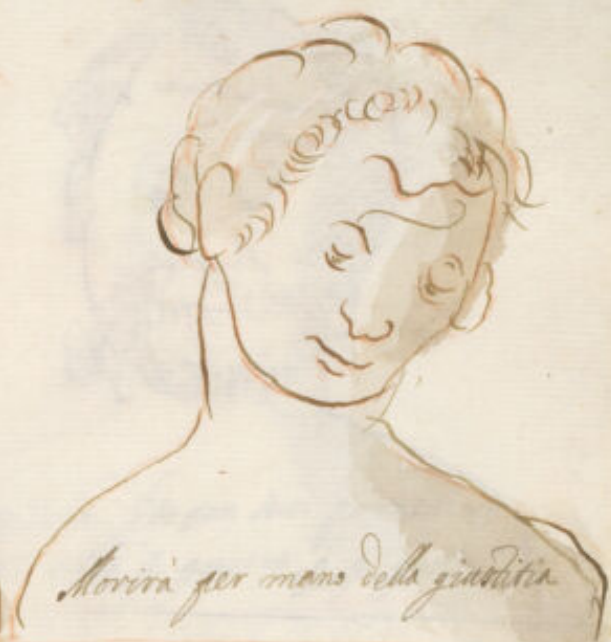 Morirà per mano della giustitia